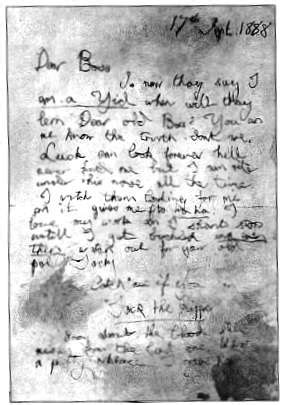 17th Sept. 1888
Dear Boss
So now they say I
am a Yid when will they
lern Dear old Boss? You an
me know the truth dont we.
Lusk can look forever hell
never find me but I am rite
under his nose all the time
I watch them looking for me
an it gives me fits ha ha I
love my work an I shant stop
untill I get buckled and even
then watch out for your old
pal Jacky
Catch me if you
Jack the Ripper
Sorry about the blood